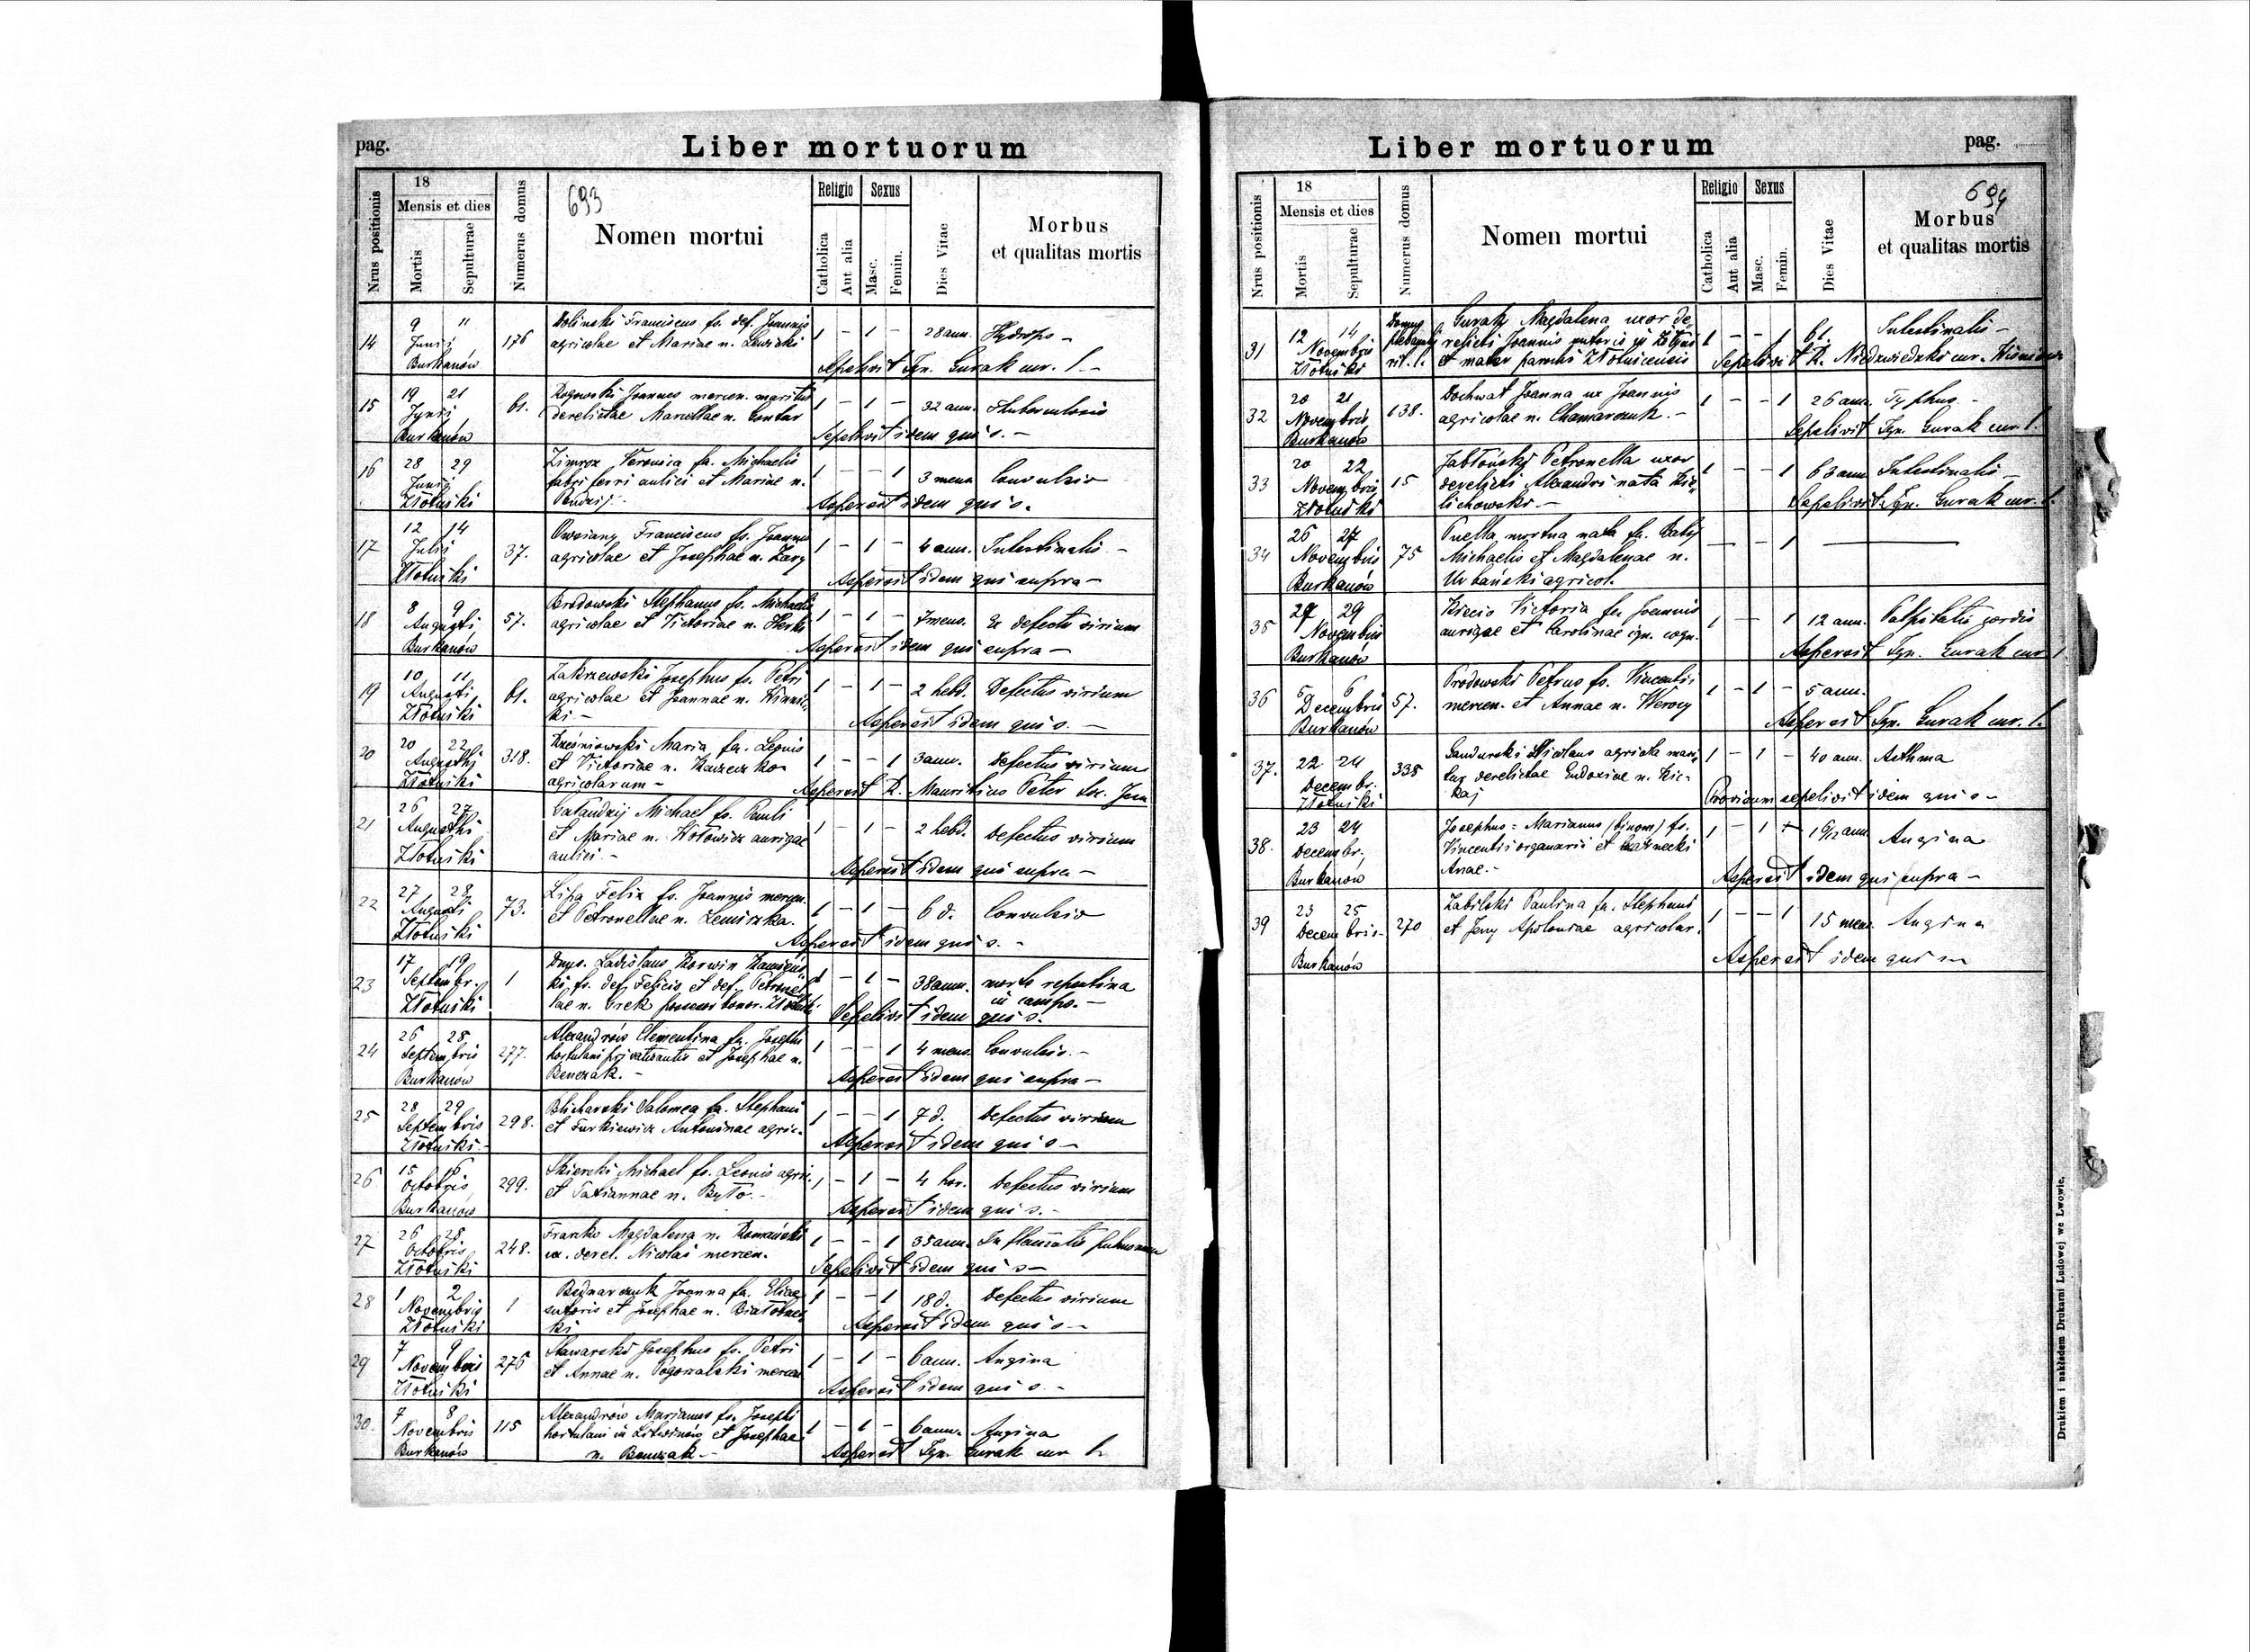 pag.
Liber mortuorum
Nrus positionis
18
Mensis et dies
Mortis
Sepulturae
Numerus domus
693
Nomen mortui
Religio
Catholica
Aut alia
Sexus
Masc.
Femin.
Dies Vitae
Morbus
et qualitas mortis
14
9 11
Junii
Burkanów
176
Dolinski Franciscus fs. def. Joannis
agricolae et Mariae n.
1 - 1 - 28 ann. Hydrops -
Sepelivit Ign. Gurak cur. l. -
15
19 21
Junii
Burkanów
61.
Rogowski Joannes mercen. maritus
derelictae Marcellae n. Gontar
1 - 1 - 32 ann. Tuberculosis
Sepelivit idem qui s. -
16
28 29
Junii
Złotniki
Zimroz Veronica fa. Michaelis
fabri ferri aulici et Mariae n.
1 - - 1 3 mens. Convulsio
Aspersit idem qui s.
17
12 14
Julii
Złotniki
37.
Owsiany Franciscus fs. Joannis
agricolae et Josephae n. Zary
1 - 1 - 4 ann. Intestinalis -
Aspersit idem qui supra -
18
8 9
Augusti
Burkanów
57.
Brodowski Stephanus fs. Michaelis
agricolae et Victoriae n.
1 - 1 - 7 mens. Ex defectu virium
Aspersit idem qui supra -
19
10 11
Augusti
Złotniki
61.
Zakrzewski Josephus fs. Petri
agricolae et Joannae n. Winnic
ki -
1 - 1 - 2 hebd. Defectus virium
Aspersit idem qui s. -
20
20 22
Augusti
Złotniki
318.
Maria fa. Leonis
et Victoriae n.
agricolarum -
1 - - 1 3 ann. Defectus virium
Aspersit R. Mauritius Peter Soc. Jesu
21
26 27
Augusti
Złotniki
Michael fs. Pauli
et Mariae n. Hołowicz aurigae
aulici. -
1 - 1 - 2 hebd. Defectus virium
Aspersit idem qui supra -
22
27 28
Augusti
Złotniki
73.
Lipa Felix fs. Joannis mercen.
et Petronellae n.
1 - 1 - 6 d. Convulsio
Aspersit idem qui s. -
23
17 19
Septembr.
Złotniki
1
Dnus. Ladislaus Korwin Kamieńs
ki, fs. def. Felicis et def. Petronel
lae n. possessor bonor. Złotniki
1 - 1 - 38 ann. mors repentina
in campo. -
Sepelivit idem qui s.
24
26 28
Septembris
Burkanów
277.
Alexandrów Clementina fa. Josephi
hortulani privatisantis et Josephae n.
Benczak. -
1 - - 1 4 mens. Convulsio. -
Aspersit idem qui supra -
25
28 29
Septembris
Złotniki -
298.
Blicharski Salomea fa. Stephani
et Furkiewicz Antoninae agric.
1 - - 1 7 d. Defectus virium
Aspersit idem qui s -
26
15 16
Octobris
Burkanów
299.
Skierski Michael fs. Leonis agri.
et Tatiannae n. Byto. -
1 - 1 - 4 hor. Defectus virium
Aspersit idem qui s. -
27
26 28
Octobris
Złotniki
248.
Franko Magdalena n. Romański
ux. derel. Nicolai mercen.
1 - - 1 35 ann. Inflamatio pulmonum
Sepelivit idem qui s -
28
1 2
Novembris
Złotniki
1
Bednarczuk Joanna fa. Eliae
sutoris et Josephae n.
ki
1 - - 1 18 d. Defectus virium
Aspersit idem qui s -
29
7 9
Novembris
Złotniki
276
Stawarski Josephus fs. Petri
et Annae n. Pogonalski mercen
1 - 1 - 6 ann. Angina
Aspersit idem qui s. -
30.
7 8
Novembris
Burkanów
115
Alexandrów Marianus fs. Josephi
hortulani in Litwinów et Josephae
n. Benczak -
1 - 1 - 6 ann. Angina
Aspersit Ign. Gurak cur l.
Liber mortuorum
pag.
Nrus positionis
18
Mensis et dies
Mortis
Sepulturae
Numerus domus
Nomen mortui
Religio
Catholica
Aut alia
Sexus
Masc.
Femin.
Dies Vitae
694
Morbus
et qualitas mortis
31
12 14
Novembris
Złotniki
Domus
plebanalis
rit. l.
Gurak Magdalena uxor de
relicti Joannis
et mater parochi Złotnicensis
1 - - 1 61. Intestinalis -
Sepelivit R. Niedzwiedzki cur.
32
20 21
Novembris
Burkanów
138.
Dochwat Joanna ux Joannis
agricolae n. -
1 - - 1 26 ann. Typhus -
Sepelivit Ign. Gurak cur l.
33
20 22
Novembris
Złotniki
15
Jabłoński Petronella uxor
derelicti Alexandri nata Kie
lichowski. -
1 - - 1 63 ann Intestinalis -
Sepelivit Ign. Gurak cur. l.
34
26 27
Novembris
Burkanów
75
Puella mortua nata fa. Baby
Michaelis et Magdalenae n.
Urbański agricol.
1
35
27 29
Novembris
Burkanów
Kiecio Victoria fa Joannis
aurigae et Carolinae ign. cogn.
1 - - 1 12 ann. Palpitatio cordis
Aspersit Ign. Gurak cur l
36
5 6
Decembris
Burkanów
57.
Brodowski Petrus fs. Vincentii
mercen. et Annae n.
1 - 1 - 5 ann.
Aspersit Ign. Gurak cur. l.
37.
22 24
Decembr.
Złotniki
335
Sandurski Nicolaus agricola mari
tus derelictae Eudoxiae n. Kic-
kaj
1 - 1 - 40 ann. Asthma
Provisum sepelivit idem qui s -
38.
23 24
Decembr.
Burkanow
Josephus = Marianus (binom) fs.
Vincentii organarii et
Annae. -
1 - 1 + 1 6/12 ann Angina
Aspersit idem qui supra -
39
23 25
Decembris -
Burkanów
270
Zabilski Paulina fa. Stephani
et Jerry Apoloniae agricolar.
1 - - 1 15 mens. Angina
Aspersit idem qui s -
Drukiem i nakładem Drukarni Ludowej we Lwowie.